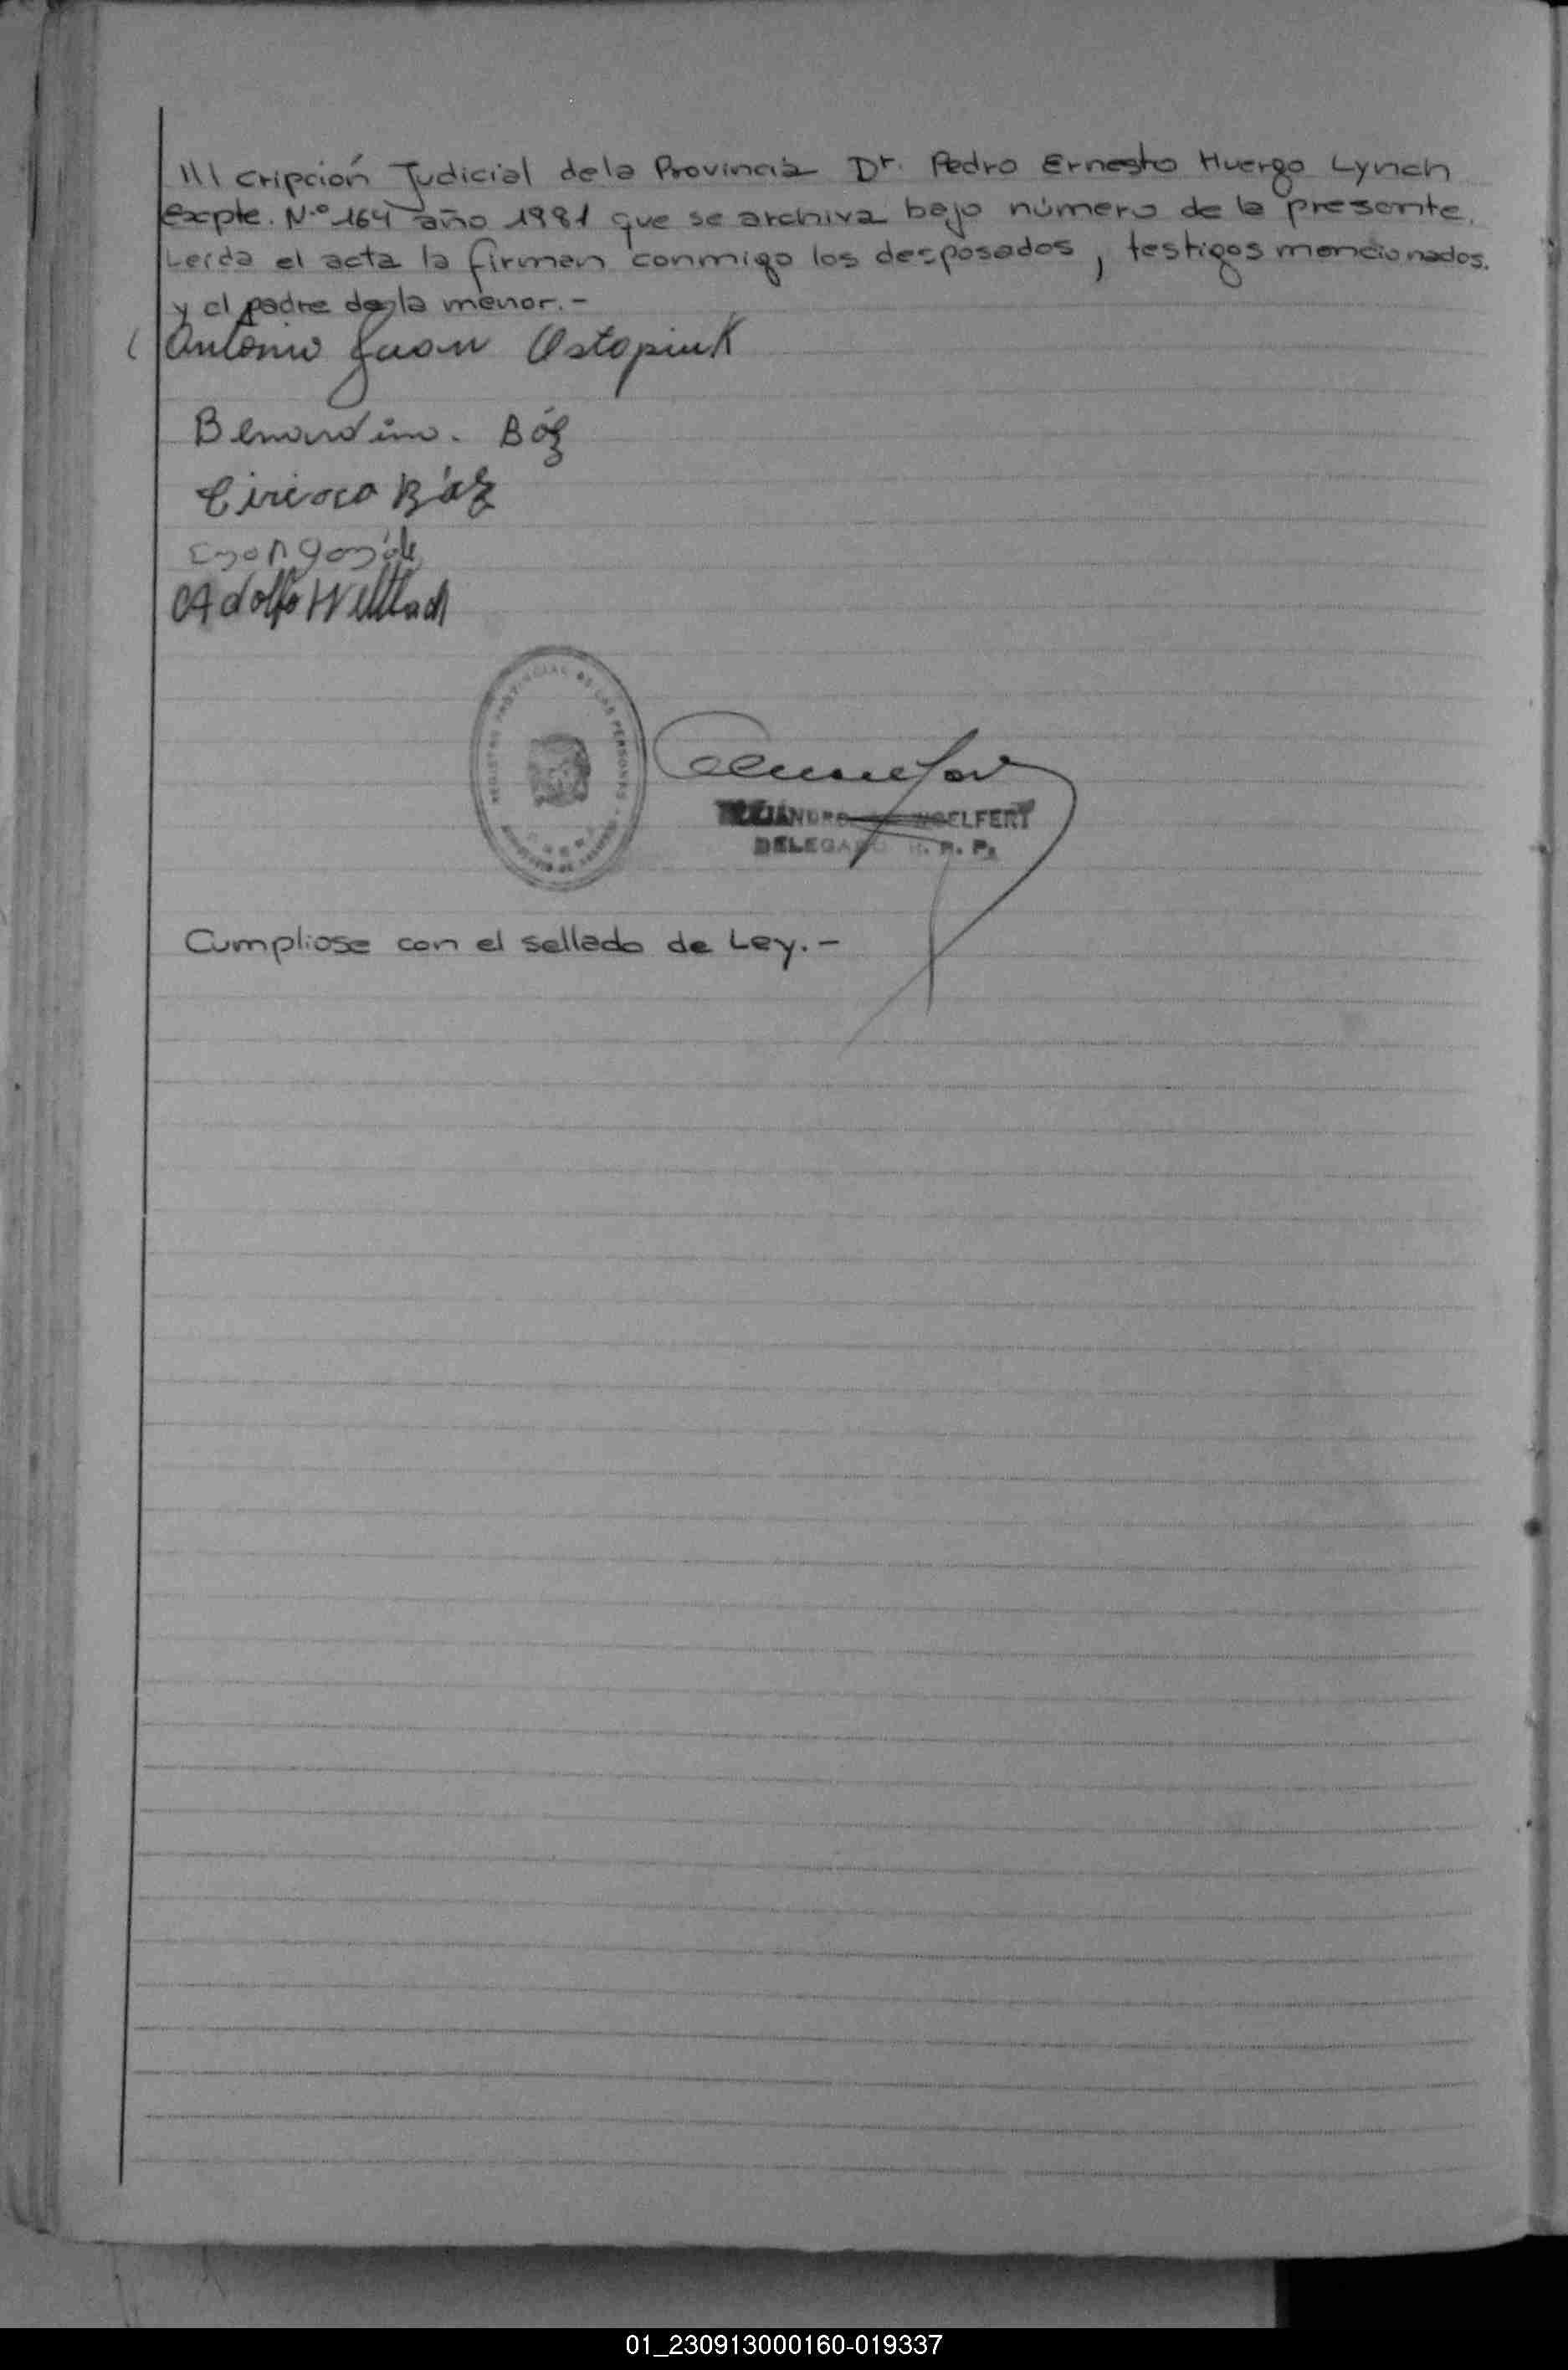 /// cripción Judicial dela Provincia Dr. Pedro Ernesto Huergo Lynch
Expte. N.º 164 año 1981 que se archiva bajo número de la presente.
Leída el acta la firman conmigo los desposados, testigos mencionados.
y el padre de la menor.-
Antonio Juan Ostapiuk
Bernardino. Báz
Ciriaco Báz
Adolfo
REGISTRO PROVINCIAL DE LAS PERSONAS
DELEGADO R. P. P.
Cumpliose con el sellado de Ley.-
01_230913000160-019337